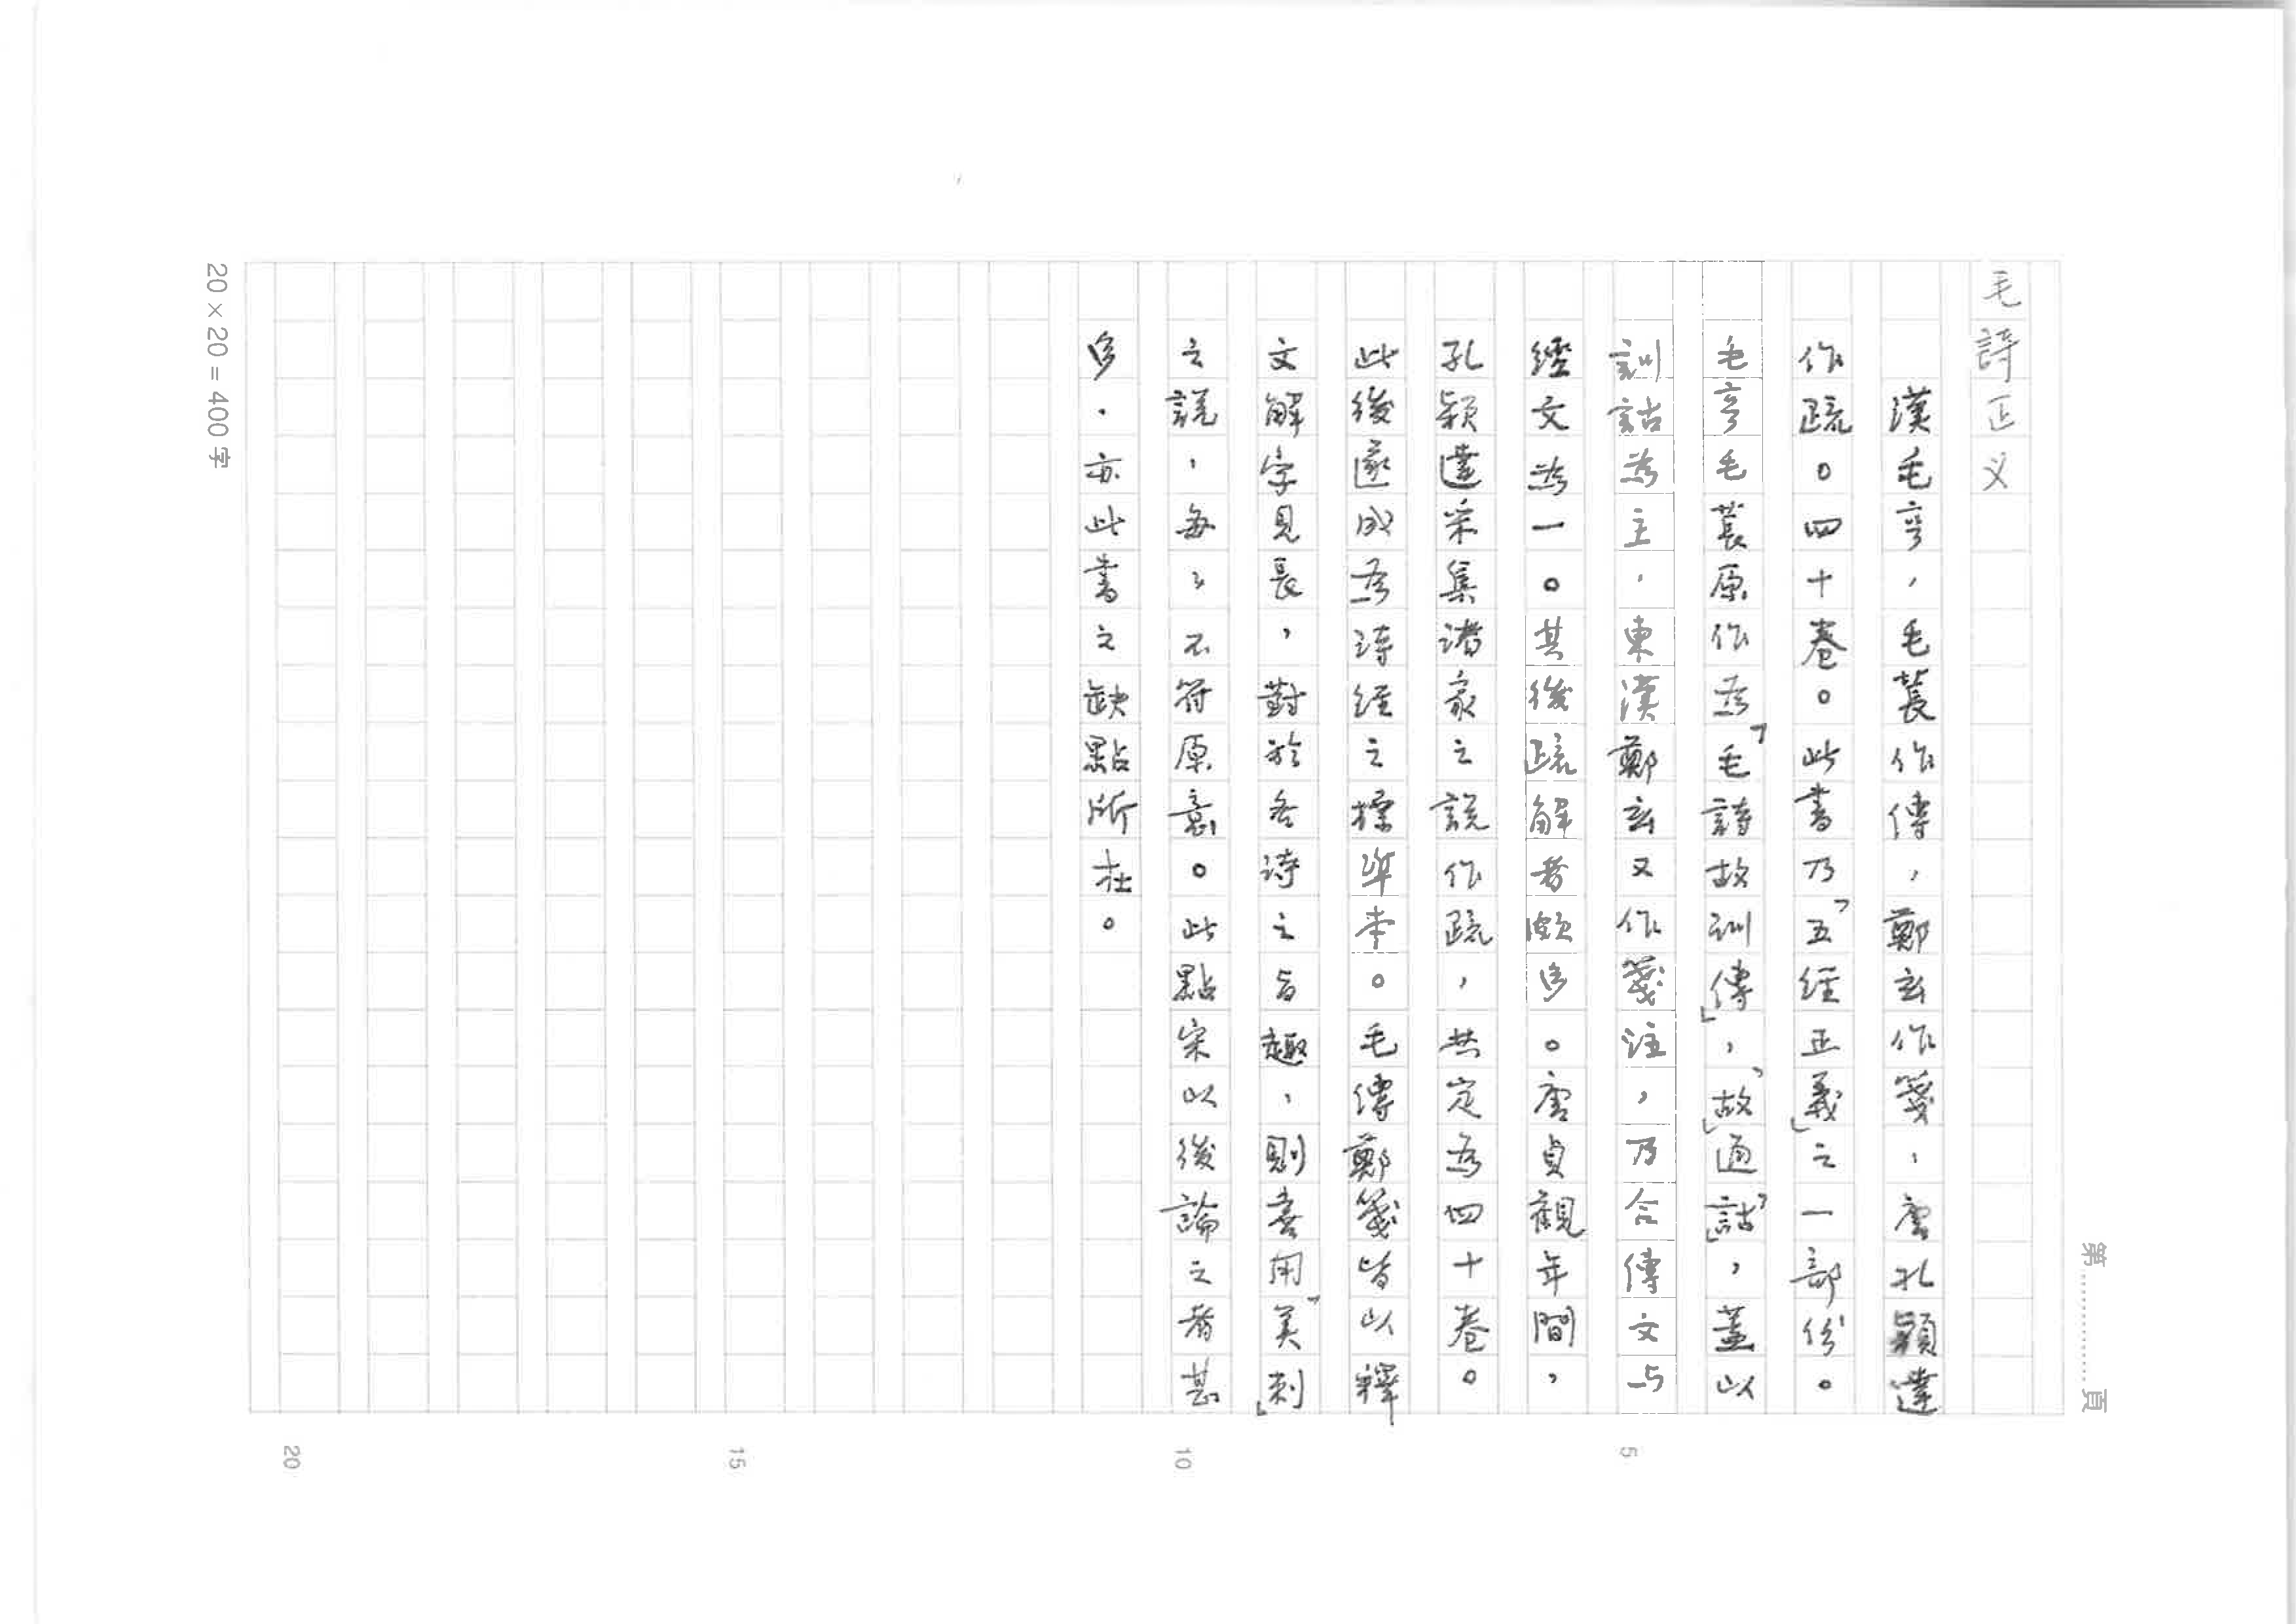 毛詩正义
漢毛亨，毛萇作傳，鄭玄作箋，唐孔穎達
作疏。四十卷。此書乃「五經正義」之一部份。
毛亨毛萇原作為「毛詩故訓傳」，「故」通「詁」，蓋以
訓詁為主，東漢鄭玄又作箋注，乃合傳文与
經文為一。其後疏解者頗多。唐貞觀年間，
孔穎達采集諸家之說作疏，共定為四十卷。
此後遂成為詩經之標準本。毛傳鄭箋皆以釋
文解字見長，對於各詩之旨趣，則喜用「美刺」
之說，每々不符原意。此點宋以後論之者甚
多．亦此書之缺點所在。
第 頁
5
10
15
20
20×20=400字